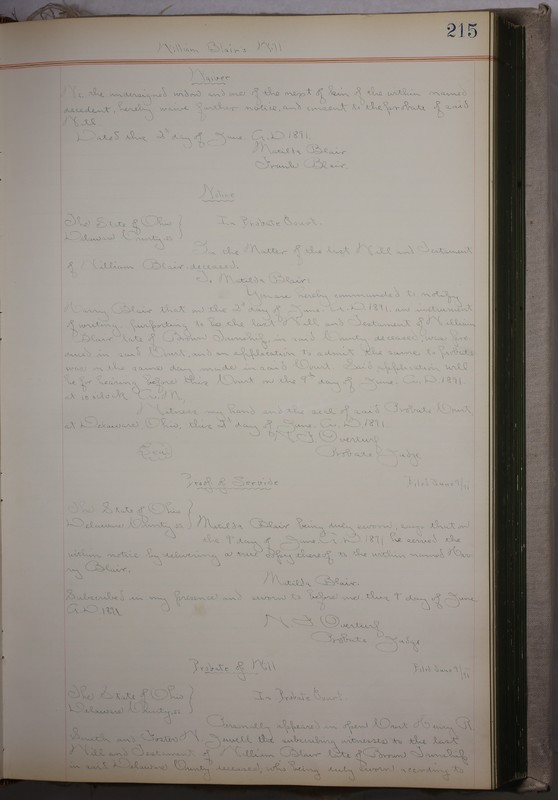 215
William Blair's Will
Waiver
We the undersigned widow and one of the next of kin of the within named
decedent, hereby waive further notice, and consent to the probate of said
Will.
Dated this day of June A.D. 1891.
Matilda Blair
Frank Blair.
Notice
The State of Ohio } In Probate Court.
Delaware County ss
In the Matter of the last Will and Testament
of William Blair deceased.
To Matilda Blair:
You are hereby commanded to notify
Blair that on the day of June A.D. 1891, an instrument
of writing, purporting to be the last Will and Testament of William
Blair late of Brown Township, in said County deceased, was pro-
duced in said Court, and an application to admit the same to probate
was on the same day made in said Court. Said application will
be for hearing before this Court on the 9th day of June A.D. 1891
at 10 o'clock A.M.
Witness my hand and the seal of said Probate Court,
at Delaware, Ohio, this day of June A.D. 1891.
(Seal)
Probate Judge
Proof of Service
Filed June
The State of Ohio }
Delaware County ss } Matilda Blair being duly sworn, says that on
the 9 day of June A.D. 1891, he served the
within notice by delivering a true copy thereof to the within named
Blair.
Matilda Blair.
Subscribed in my presence and sworn to before me, this 9 day of June
A.D. 1891.
Probate Judge
Probate of Will
Filed June
The State of Ohio } In Probate Court
Delaware County ss
Personally appeared in open Court Henry
and the subscribing witnesses to the last
Will and Testament of William Blair late of Brown Township
in said Delaware County deceased, who being duly sworn according to